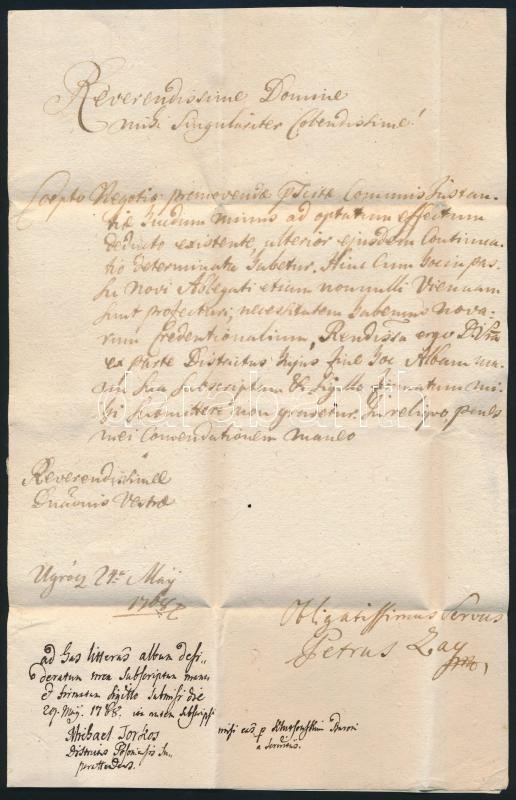 Reverendissime Domine
mihi Singulariter Colendissime!
Coepto Negotio promovendae Communis Instan-
tiae necdum minus ad optatum effectum
deducto existente, ulterior ejusdem Continua-
tio determinata habetur. Hinc Cum hoc in pas-
su novi Ablegati etiam nonnulli Viennam
sint profecturi; necessitatem habemus nova-
rum Credentionalium, Rendissa ergo D. Vra
ex parte Districtus hujus fine hoc Albam ma-
nu sua subscriptam & Sigillo firmatam mi-
hi submittere non gravetur. In reliquo penes
mei Comendationem maneo
Reverendissimae
Dnaonis Vestrae
Ugrócz 24a May
1788
Obligatissimus Servus
Petrus Zay
ad has litteras albam desi-
deratam mea subscriptam manu
et firmatam sigillo submisi die
29. Maj. 1788.
misi eas p
Michael Torkos
Districtus Posoniensis Su-
perattendens.
darabanth